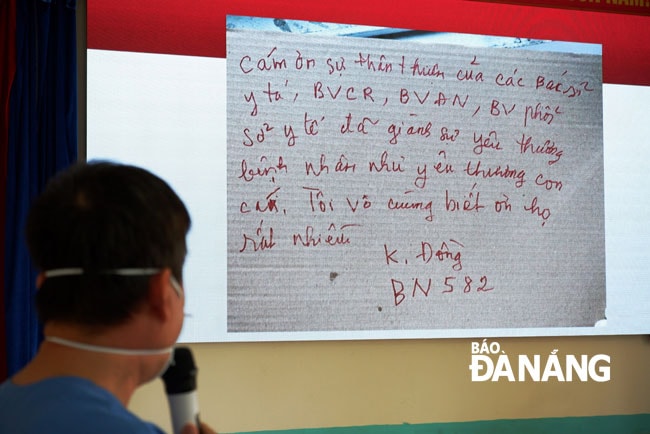 Cám ơn sự thân thiện của các Bác sĩ
y tá, BVCR, BVĐN, BV phổi
sở y tế đã giành sự yêu thương
bệnh nhân như yêu thương con
cái. Tôi vô cùng biết ơn họ
rất nhiều
K. Đồng
BN 582
BÁO
ĐÀ NẴNG